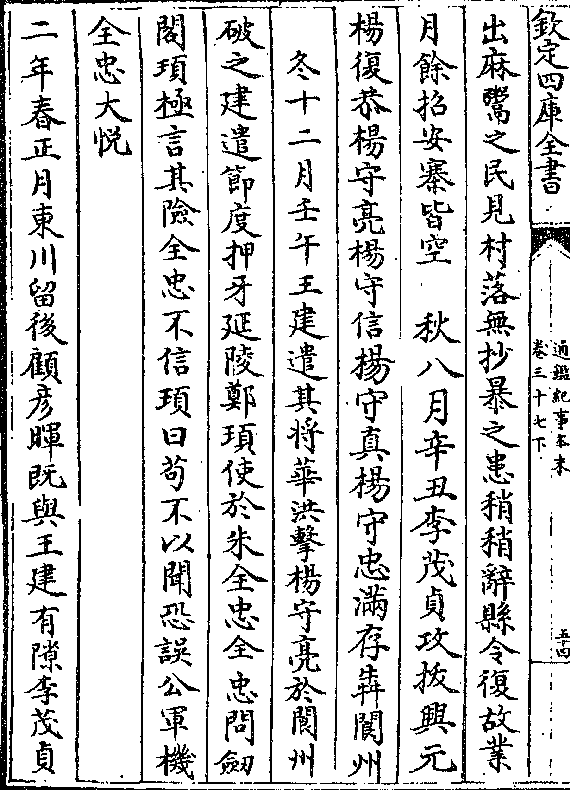 欽定四庫全書
通鑑紀事本末
卷三十七下
五十四
出麻鬻之民見村落無抄暴之患稍稍辭縣令復故業
月餘招安寨皆空　秋八月辛丑李茂貞攻拔興元
楊復恭楊守亮楊守信楊守真楊守忠滿存犇閬州
冬十二月壬午王建遣其将華洪擊楊守亮於閬州
破之建遣節度押牙延陵鄭頊使於朱全忠全忠問劔
閣頊極言其險全忠不信頊曰茍不以聞恐誤公軍機
全忠大悦
二年春正月東川留後顧彦暉既與王建有隙李茂貞